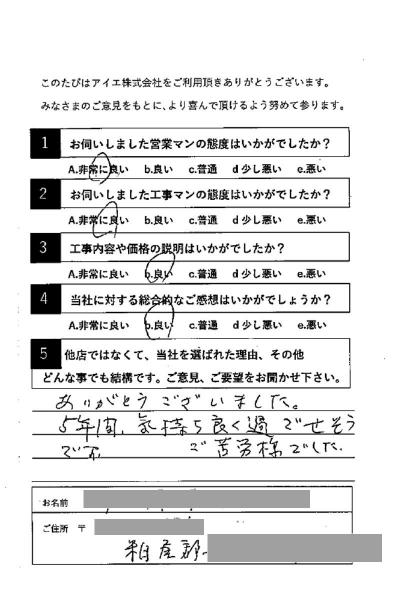 このたびはアイエ株式会社をご利用頂きありがとうございます。
みなさまのご意見をもとに、より喜んで頂けるよう努めて参ります。
1 お伺いしました営業マンの態度はいかがでしたか？
A.非常に良い b.良い c.普通 d少し悪い e.悪い
2 お伺いしました工事マンの態度はいかがでしたか？
A.非常に良い b.良い c.普通 d少し悪い e.悪い
3 工事内容や価格の説明はいかがでしたか？
A.非常に良い b.良い c.普通 d少し悪い e.悪い
4 当社に対する総合的なご感想はいかがでしょうか？
A.非常に良い b.良い c.普通 d少し悪い e.悪い
5 他店ではなくて、当社を選ばれた理由、その他
どんな事でも結構です。ご意見、ご要望をお聞かせ下さい。
ありがとうございました。
5年間、気持ち良く過ごせそう
です。 ご苦労様でした。
お名前
ご住所 〒
糟屋郡